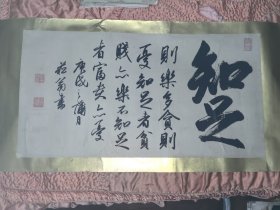 知足
則樂多貪則
憂知足者貧
賤亦樂不知足
者富貴亦憂
庚戌 月
翁書